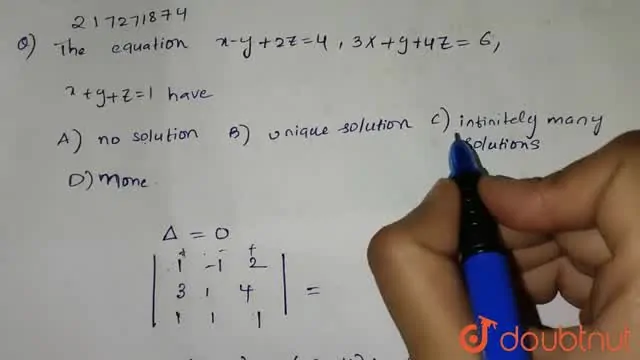 217271874
Q) The equation x-y+2z=4, 3x+y+4z=6,
x+y+z=1 have
A) no solution B) unique solution C) infinitely many
solutions
D) None
Δ = 0
+ - +
| 1 -1 2 |
| 3 1 4 | =
| 1 1 1 |
doubtnut